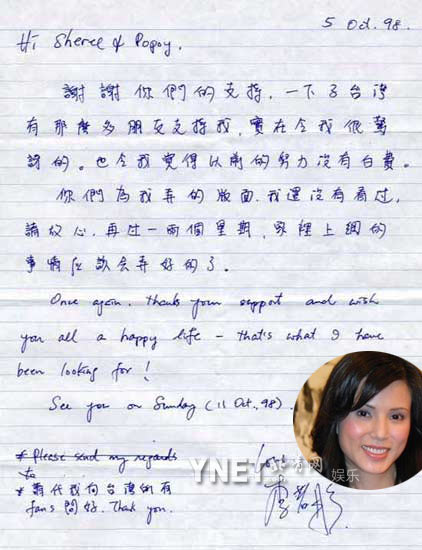 5 Oct. 98.
Hi Sheree & Popoy,
謝謝你們的支持。一下子台灣
有那麼多朋友支持我,實在令我很驚
訝的。也令我覺得以前的努力沒有白費。
你們為我弄的版面,我還沒有看过,
請放心,再过一兩個星期,家裡上網的
事情应該会弄好的了。
Once again, thanks your support and wish
you all a happy life - that's what I have
been looking for!
See you on Sunday (11 Oct., 98).
* Please send my regards
to
* 請代我向台灣所有
fans問好. Thank you.
李若彤
YNET 北青网
娱乐